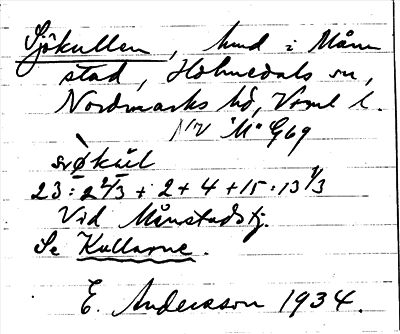 Sjökullen, hmd i Mån
stad, Holmedals sn,
Nordmarks hd, Vrml l.
NV "M" G69
sı̷økùl
23:2 2/3 + 2 + 4 + 15:13 1/3
Vid Månstadstj.
Se Kullarne.
E. Andersson 1934.